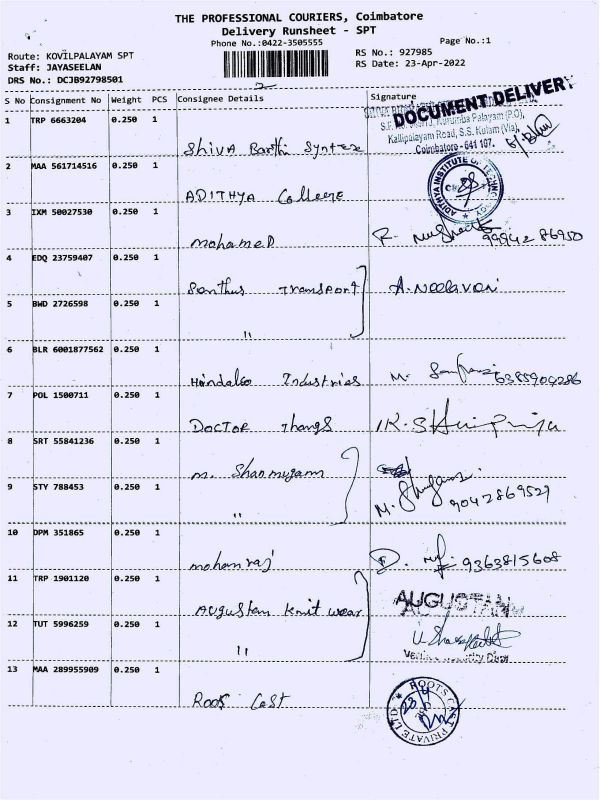 THE PROFESSIONAL COURIERS, Coimbatore
Delivery Runsheet - SPT
Phone No.:0422-3505555
Page No.:1
Route: KOVILPALAYAM SPT
Staff: JAYASEELAN
DRS No.: DCJB92798501
RS No.: 927985
RS Date: 23-Apr-2022
S No Consignment No Weight PCS Consignee Details Signature
DOCUMENT DELIVERY
Kurumba Palayam (P.O),
Kallipalayam Road, S.S. Kulam (Via),
Coimbatore - 641 107.
1 TRP 6663204 0.250 1
Shiva Barthi Syntex
2 MAA 561714516 0.250 1
ADITHYA College
ADITHYA INSTITUTE OF TECHNOLOGY
3 IXM 50027530 0.250 1
mohamed
R. 99942 86950
4 EDQ 23759407 0.250 1
Santhus Transport A. Neelavani
5 BWD 2726598 0.250 1
"
6 BLR 6001877562 0.250 1
Hindalco Industries M. 6385904286
7 POL 1500711 0.250 1
DOCTOR Thangs K. S
8 SRT 55841236 0.250 1
m. Shanmugam
9 STY 788453 0.250 1
" M. 9042869527
10 DPM 351865 0.250 1
mohanraj D. 9363815608
11 TRP 1901120 0.250 1
Augustan Knit wear AUGUSTAN
12 TUT 5996259 0.250 1
"
13 MAA 289955909 0.250 1
Roots Cast
ROOTS CAST PRIVATE LTD